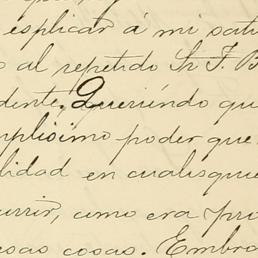 esplicar á mi sati
al repetido Sr F. B
dente. Queriendo que
mplísimo poder que
lidad en cualisquie
urrir, como era pro
esas cosas. Embro